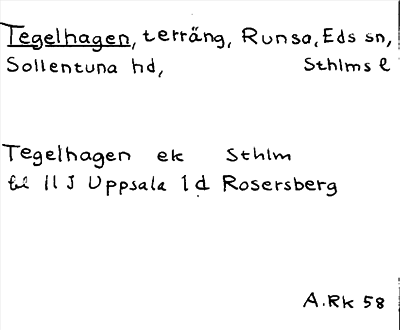 Tegelhagen, terräng, Runsa, Eds sn,
Sollentuna hd, Sthlms l
Tegelhagen ek Sthlm
bl 11 J Uppsala 1 d Rosersberg
A.Rk 58